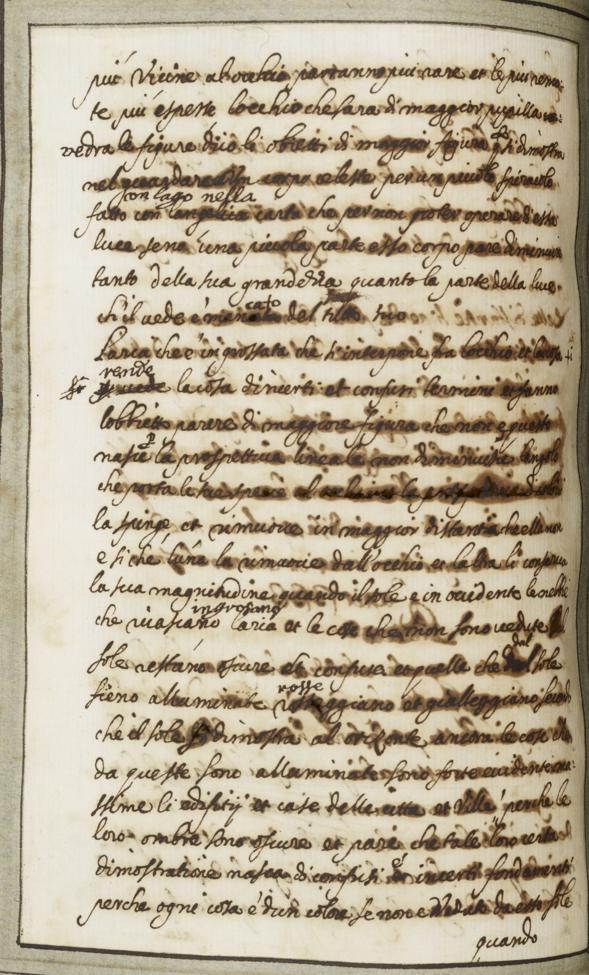 più Vicine al ochio parranno piu rare et le piu remo-
te piùespesse l'occhio che sara di maggior pupilla ve-
vedra le figure dico li obietti di maggior figura
nel guardare Un corpo celeste per un piccolo spiracolo
con l'ago nella
fatto con carta che per non poter operare di essa
luce senó una piccola parte esso corpo pare diminuir
tanto della sua grandezza quanto la parte della luce
ch'il vede è mancato del suo
L'aria che è ingrossata che s'interpone fra l'occhio et la cosa
rende la cosa d'incerti et confusi termini et fanno
l'obbietto parere di maggiore figura che non è questo
nasce la prospettiva lineale non diminuisce l'angolo
che porta le sue specie
la spinge et rimuove in maggior distantia che ella non
e si ché l'una la rimuove dall'occhio et l'altra li conserva
la sua magnitudine quando il sole e in occidente le nebbie
ingrossano
che l'aria et le cose che non sono vedute
sole restano oscure et confuse et quelle che dal sole
sieno alluminate rosseggiano et gialleggiano
che il sole si dimostra al orizonte ancora le cose che
da queste sono alluminate sono forte evidente ma-
ssime li edifitij et case delle citta et Ville perche le
loro ombre sono oscure et pare che tale loro certa
dimostratione nasca di confusi et incerti fondamenti
perche ogni cosa è d'un colore se non e veduta da esso sole
quando